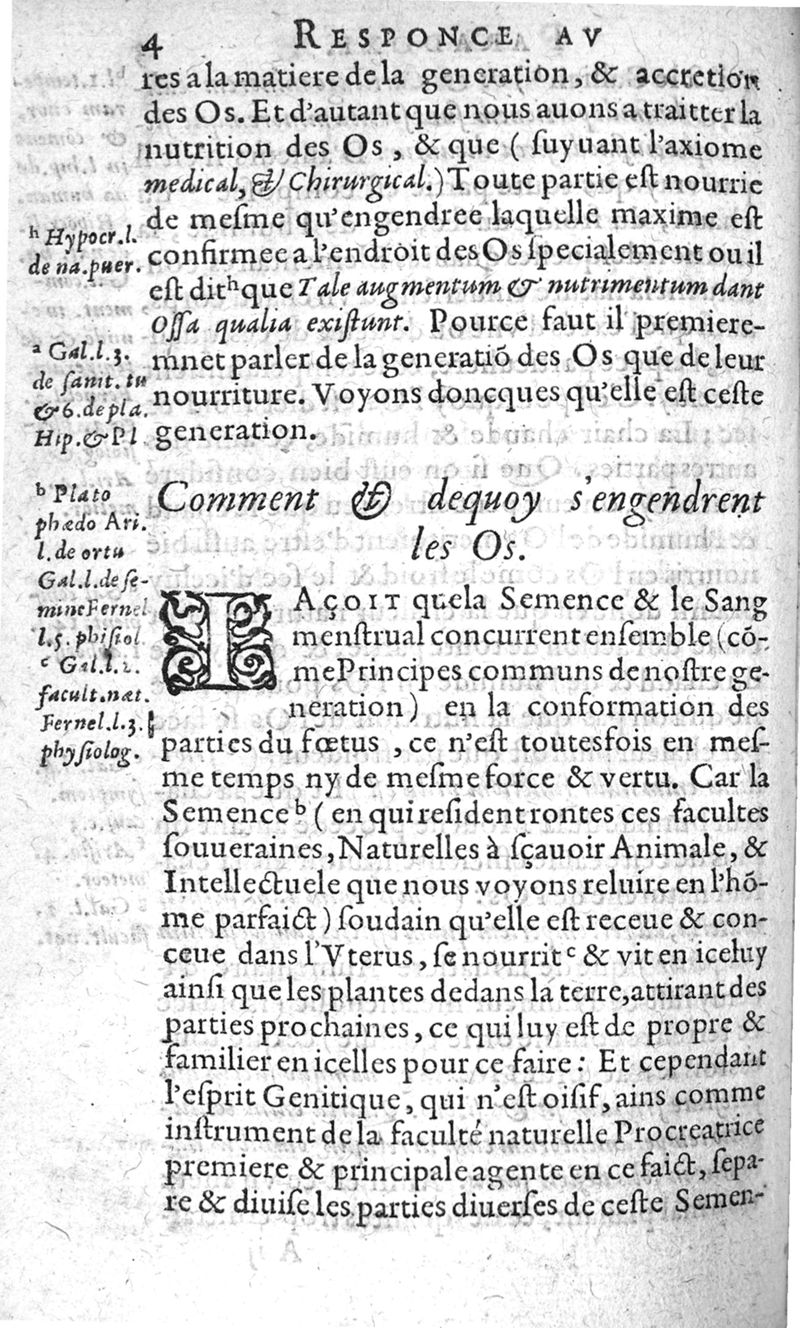 4 RESPONCE AV
res a la matiere de la generation, & accretion
des Os. Et d'autant que nous auons a traitter la
nutrition des Os, & que (ſuyuant l'axiome
medical, & Chirurgical.) Toute partie eſt nourrie
de meſme qu'engendree laquelle maxime eſt
confirmee a l'endroit des Os ſpecialement ou il
eſt dit ʰ que Tale augmentum & nutrimentum dant
Oſſa qualia exiſtunt. Pource faut il premiere-
mnet parler de la generatiõ des Os que de leur
nourriture. Voyons doncques qu'elle eſt ceſte
generation.
ʰ Hypocr. l.
de na. puer.
ᵃ Gal. l. 3.
de ſanit. tu
& 6. de pla.
Hip. & Pl
Comment & dequoy s'engendrent
les Os.
IAÇOIT que la Semence & le Sang
menſtrual concurrent enſemble (cõ-
me Principes communs de noſtre ge-
neration) en la conformation des
parties du fœtus, ce n'eſt toutesfois en meſ-
me temps ny de meſme force & vertu. Car la
Semence ᵇ (en qui reſident rontes ces facultes
ſouueraines, Naturelles à ſçauoir Animale, &
Intellectuele que nous voyons reluire en l'hõ-
me parfaict) ſoudain qu'elle eſt receue & con-
ceue dans l'Vterus, ſe nourrit ᶜ & vit en iceluy
ainſi que les plantes dedans la terre, attirant des
parties prochaines, ce qui luy eſt de propre &
familier en icelles pour ce faire: Et cependant
l'eſprit Genitique, qui n'eſt oiſif, ains comme
inſtrument de la faculté naturelle Procreatrice
premiere & principale agente en ce faict, ſepa-
re & diuiſe les parties diuerſes de ceſte Semen-
ᵇ Plato
phædo Ari.
l. de ortu
Gal. l. de ſe-
mine Fernel
l. 5. phiſiol
ᶜ Gal. l. 2.
facult. nat.
Fernel. l. 3.
phyſiolog.